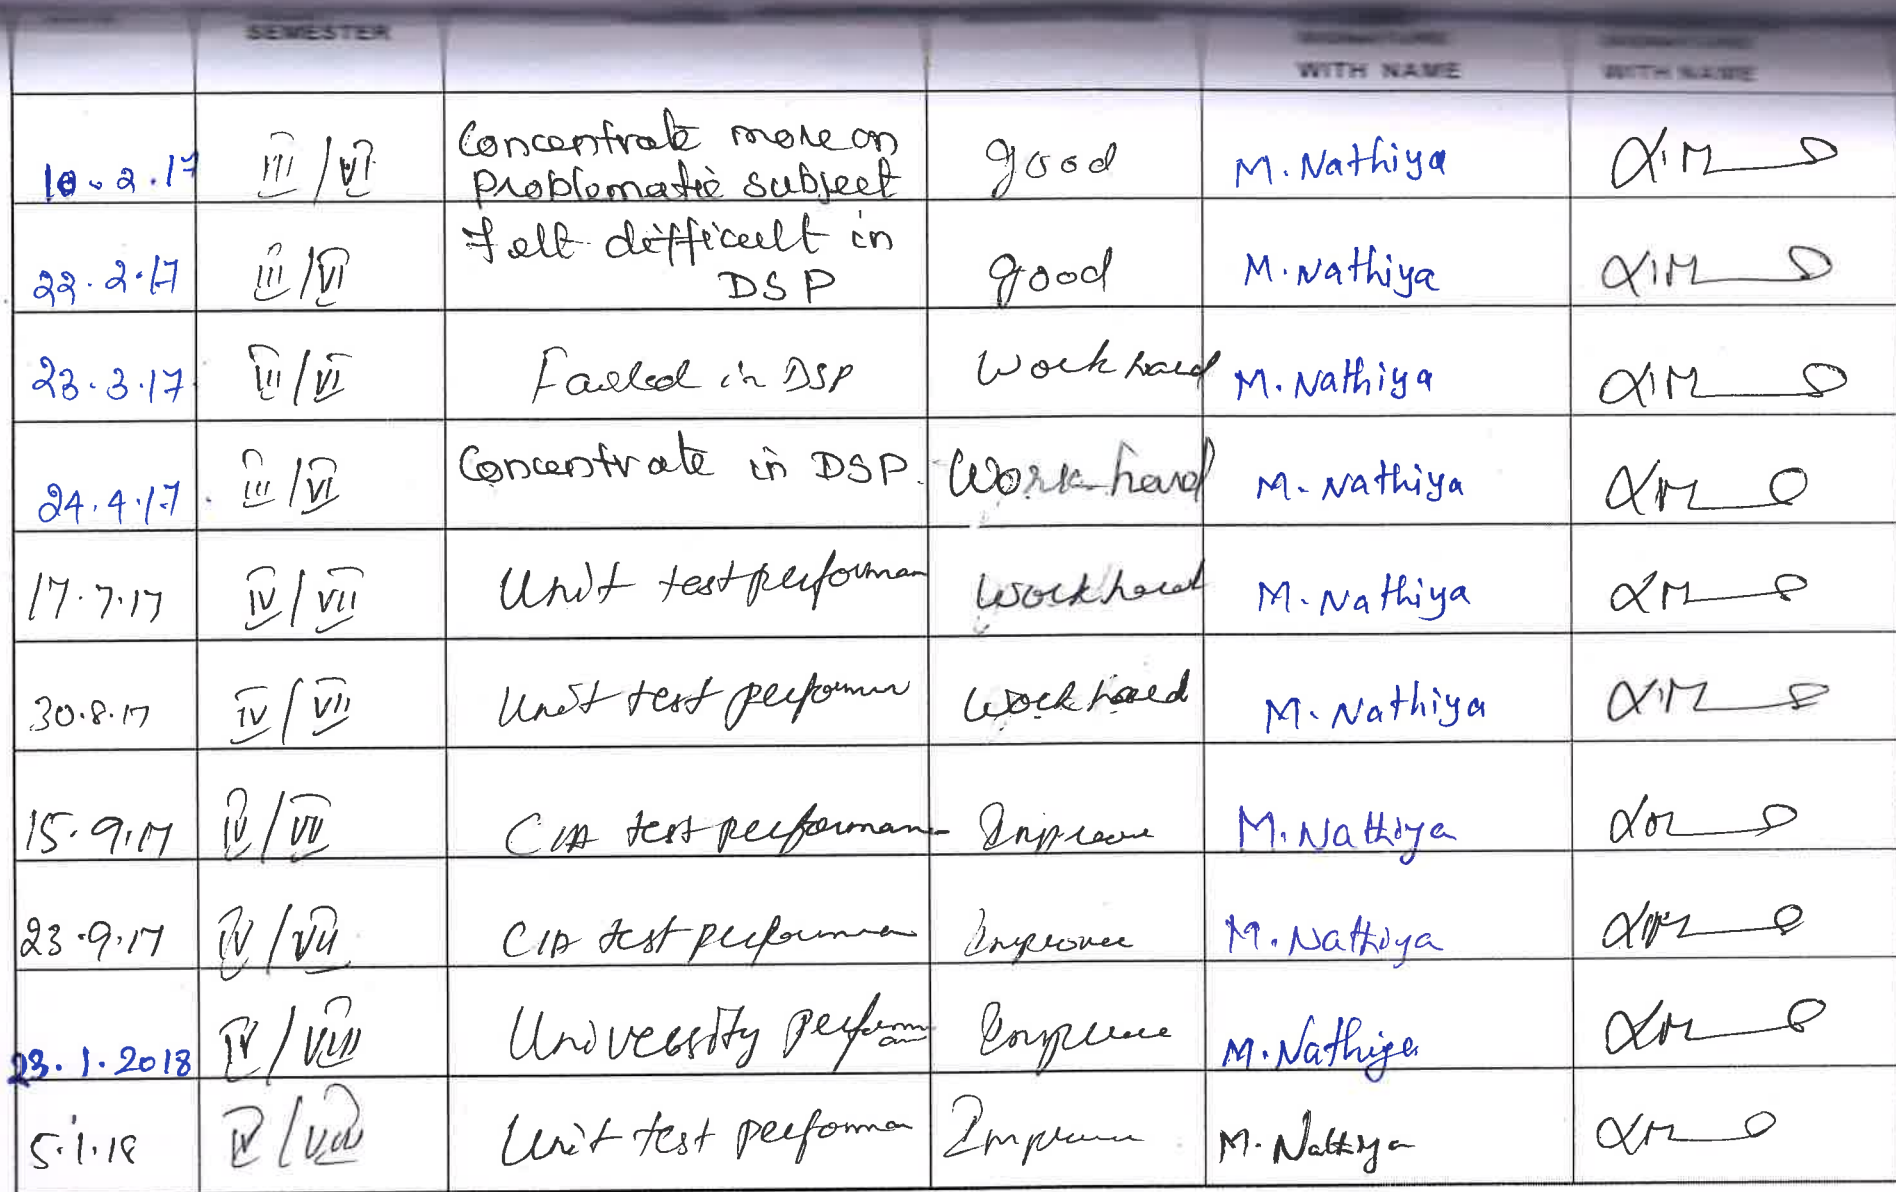 SEMESTER
SIGNATURE WITH NAME
SIGNATURE WITH NAME
10.2.17 III/VI Concentrate more on problematic subject good M. Nathiya
22.2.17 III/VI Felt difficult in DSP good M. Nathiya
23.3.17 III/VI Failed in DSP Work hard M. Nathiya
24.4.17 III/VI Concentrate in DSP. Work hard M. Nathiya
17.7.17 IV/VII Unit test performan Work hard M. Nathiya
30.8.17 IV/VII Unit test Work hard M. Nathiya
15.9.17 IV/VII CIA test performan Improve M. Nathiya
23.9.17 IV/VII CIA test Improve M. Nathiya
23.1.2018 IV/VIII University Improve M. Nathiya
5.1.18 IV/VIII Unit test Improve M. Nathiya